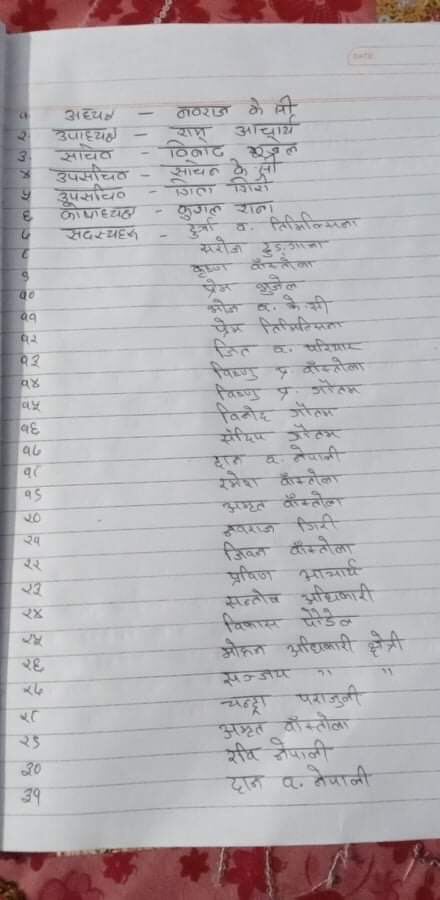 DATE
१ अध्यक्ष - नवराज के सी
२. उपाध्यक्ष - राम आचार्य
३. सचिव - विनोद भुजेल
४ उपसचिव - सचिन के सी
५ उपसचिव - गिता गिरी
६ कोषाध्यक्ष - कुशल राना
७ सदस्यहरू - दुर्गा व. तिमिल्सिना
८ सरोज ढुङगाना
९ कृष्ण वाँस्तोला
१० प्रेम भुजेल
११ ओम व. के.सी
१२ प्रेम तिमिल्सिना
१३ जित व. परियार
१४ विष्णु प्र वाँस्तोला
१५ विष्णु प्र. गौतम
१६ विनोद गौतम
१७ संदिप गौतम
१८ दान व. नेपाली
१९ रमेश वाँस्तोला
२० अमृत वाँस्तोला
२१ गिरी
२२ जिवन वाँस्तोला
२३ प्रविण आचार्य
२४ सन्तोष अधिकारी
२५ विकास पौडेल
२६ मोहन अधिकारी क्षेत्री
२७ सञ्जय " "
२८ चन्द्रा पराजुली
२९ अमृत वाँस्तोला
३० रवि नेपाली
३१ दान व. नेपाली